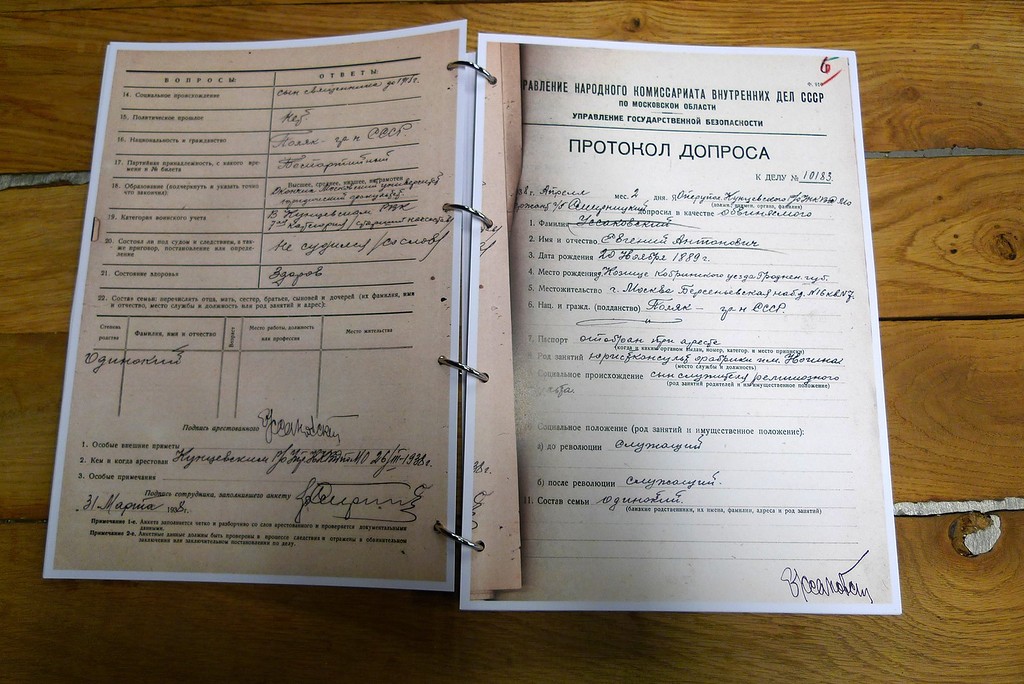 ВОПРОСЫ: ОТВЕТЫ:
14. Социальное происхождение сын священника до 1917г.
15. Политическое прошлое нет
16. Национальность и гражданство Поляк - гр-н СССР
17. Партийная принадлежность, с какого времени и № билета Беспартийный
18. Образование (подчеркнуть и указать точно что закончил) Высшее, среднее, низшее, неграмотен
Окончил Московский университет
юридический факультет
19. Категория воинского учета В Кунцевском РВК
20. Состоял ли под судом и следствием, а также приговор, постановление или определение Не судился (со слов)
21. Состояние здоровья Здоров
22. Состав семьи: перечислить отца, мать, сестер, братьев, сыновей и дочерей (их фамилия, имя
и отчество, место службы и должность или род занятий и адрес):
Степень родства Фамилия, имя и отчество Возраст Место работы, должность или профессия Место жительства
Одинокий
Подпись арестованного
1. Особые внешние приметы
2. Кем и когда арестован Кунцевским Р/О УНКВД МО 26/III-1938г.
3. Особые примечания
Подпись сотрудника, заполнявшего анкету
31 Марта 1938г.
Примечание 1-е. Анкета заполняется четко и разборчиво со слов арестованного и проверяется документальными
данными.
Примечание 2-е. Анкетные данные должны быть проверены в процессе следствия и отражены в обвинительном
заключении или заключительном постановлении по делу.
6
РАВЛЕНИЕ НАРОДНОГО КОМИССАРИАТА ВНУТРЕННИХ ДЕЛ СССР
ПО МОСКОВСКОЙ ОБЛАСТИ
УПРАВЛЕНИЕ ГОСУДАРСТВЕННОЙ БЕЗОПАСНОСТИ
ПРОТОКОЛ ДОПРОСА
К ДЕЛУ № 10183.
38г. Апреля мес. 2 дня. Я Оперупол. Кунцевского Р/О УНКВД МО
(должн. наимен. органа, фамилия)
допросил в качестве обвиняемого
1. Фамилия Уссаковский
2. Имя и отчество Евгений Антонович
3. Дата рождения 20 Ноября 1889г.
4. Место рождения Кобринского уезда Гроднен. губ.
5. Местожительство г. Москва Берсеньевская наб. д. №16 кв. №7.
6. Нац. и гражд. (подданство) Поляк - гр-н СССР.
7. Паспорт отобран при аресте
(когда и каким органом выдан, номер, категор. и место прописки)
8. Род занятий юрисконсульт фабрики им. Ногина
(место службы и должность)
Социальное происхождение сын служителя религиозного
культа.
(род занятий родителей и их имущественное положение)
10. Социальное положение (род занятий и имущественное положение):
а) до революции служащий
б) после революции служащий.
11. Состав семьи одинокий.
(близкие родственники, их имена, фамилии, адреса и род занятий)